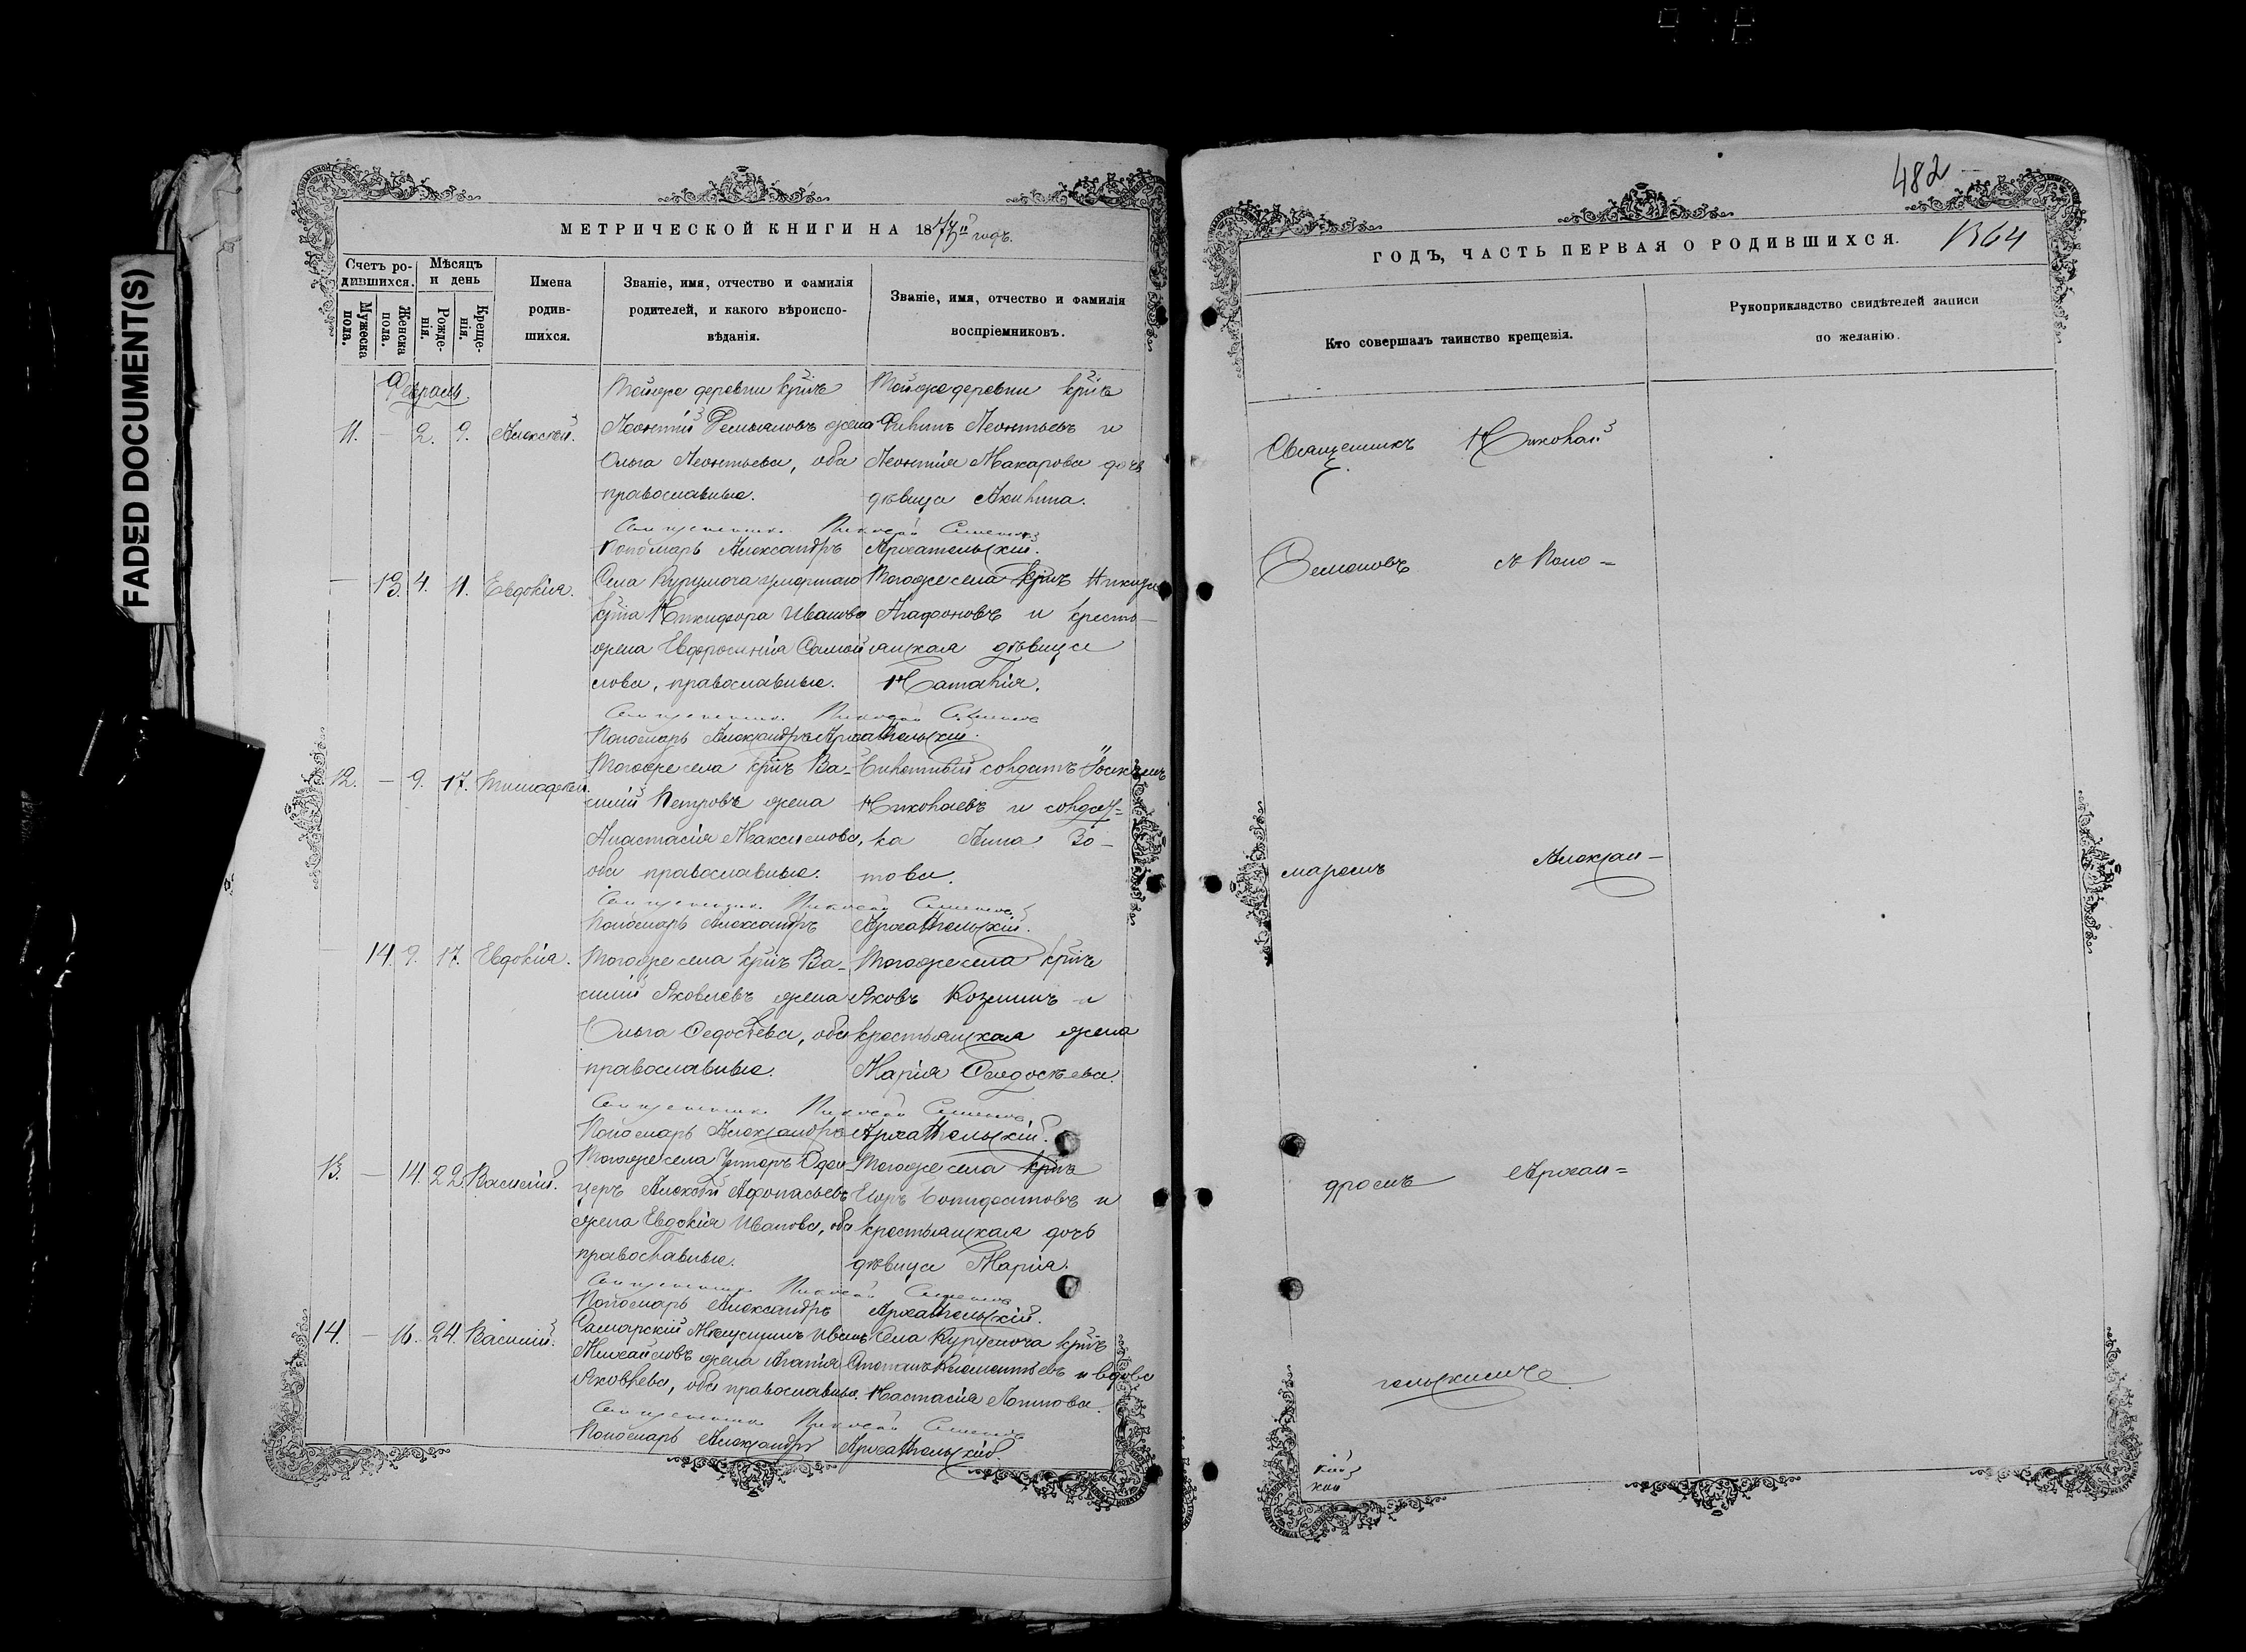 FADED DOCUMENT(S)
МЕТРИЧЕСКОЙ КНИГИ НА 18 годъ.
Счетъ ро-
дившихся.
Мужеска пола.
Женска пола.
Мѣсяцъ
и день
Рожде-
нія.
Креще-
нія.
Имена
родив-
шихся.
Званіе, имя, отчество и фамилія
родителей, и какого вѣроиспо-
вѣданія.
Званіе, имя, отчество и фамилія
воспріемниковъ.
Февраль.
Тойже деревни крнъ
11. — 2. 9. Алексѣй.
Леонтій Демьяновъ жена
Ольга Леонтьева, оба
православные.
Тойже деревни крнъ
Филипъ Леонтьевъ и
Леонтія Макарова дочь
дѣвица Акилина.
Священникъ Николай Семеновъ
Пономарь Александръ Архангельскій.
— 13. 4. 11. Евдокія.
Села Курумоча умершаго
крна Никифора Иванова
жена Евфросинія Самой
лова, православные.
Тогоже села крнъ
Агафоновъ и кресть-
янская дѣвица
Наталія.
Священникъ Николай Семеновъ
Пономарь Александръ Архангельскій.
12. — 9. 17. Тимофей.
Тогоже села крнъ Ва-
силій Петровъ жена
Анастасія Максимова,
оба православные.
Билетный солдатъ
Николаевъ и солдат-
ка Анна Зо-
това.
Священникъ Николай Семеновъ
Пономарь Александръ Архангельскій.
— 14. 9. 17. Евдокія.
Тогоже села крнъ Ва-
силій Яковлевъ жена
Ольга Федосѣева, оба
православные.
Тогоже села крнъ
Яковъ Козминъ и
крестьянская жена
Марія Федосѣева.
Священникъ Николай Семеновъ
Пономарь Александръ Архангельскій.
13. — 14. 22. Василій.
Тогоже села Унтеръ Офи-
церъ Алексѣй Афонасьевъ
жена Евдокія Иванова, оба
православные.
Тогоже села крнъ
Егоръ и
крестьянская дочь
дѣвица Марія.
Священникъ Николай Семеновъ
Пономарь Александръ Архангельскій.
14. — 16. 24. Василій.
Самарскій Мѣщанинъ Иванъ
Михайловъ жена Агапія
Яковлева, оба православные.
Села Курумоча крнъ
Степанъ Клементьевъ и вдова
Настасія Логинова.
Священникъ Николай Семеновъ
Пономарь Александръ Архангельскій.
482
1364
ГОДЪ, ЧАСТЬ ПЕРВАЯ О РОДИВШИХСЯ.
Кто совершалъ таинство крещенія.
Рукоприкладство свидѣтелей записи
по желанію.
Священникъ Николай
Семеновъ съ Поно=
маремъ Алексан-
дромъ Архан=
гельскимъ.